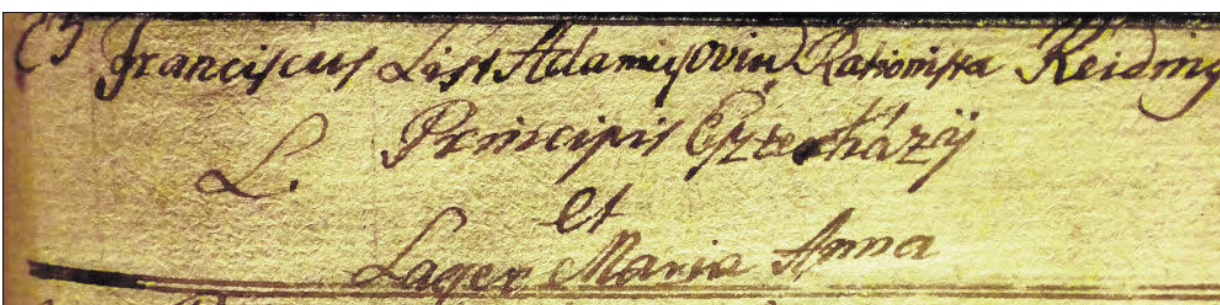 Franciscus List Adamus ovium Rationista
L. Principis Eszterházÿ
et
Lager Maria Anna